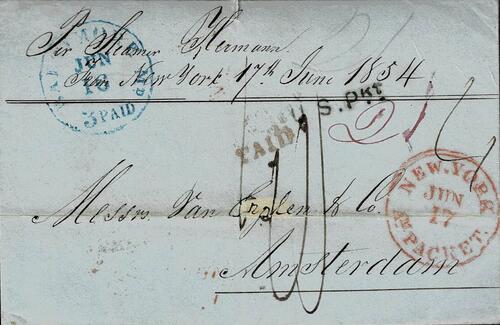 Per Steamer Hermann
from New York 17th June 1854
JUN
16
3 PAID
PAID
S.Pkt
21
NEW-YORK
JUN
17
AM PACKET.
Messrs. Van & Co.
Amsterdam